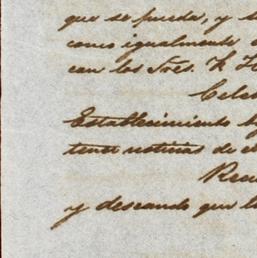 que se pueda, y s
como igualmente
con los Sres. K
Cele
Establecimiento
tener noticias de el
y deseando que l